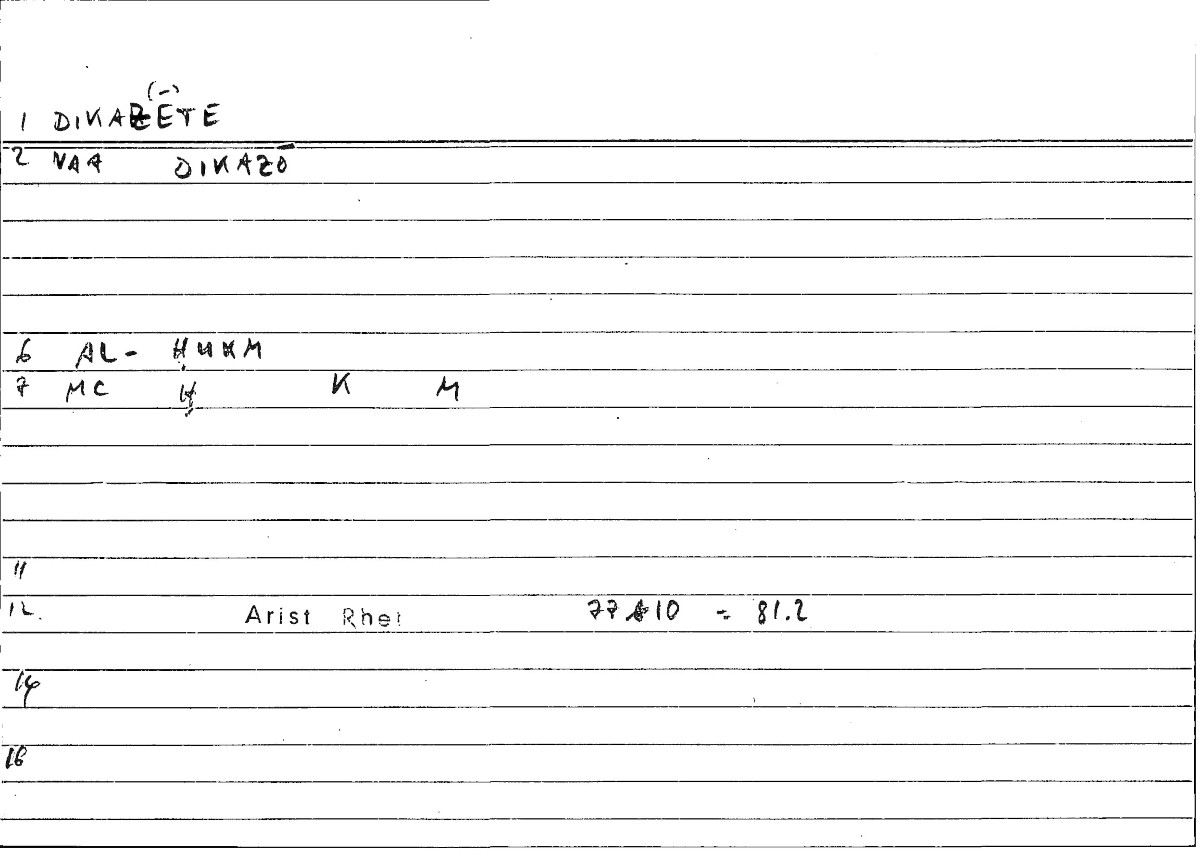 (-)
1 DIKAZETE
2 VAA DIKAZŌ
6 AL- ḤUKM
7 MC Ḥ K M
11
12. Arist Rhet 77 10 = 81.2
14
16